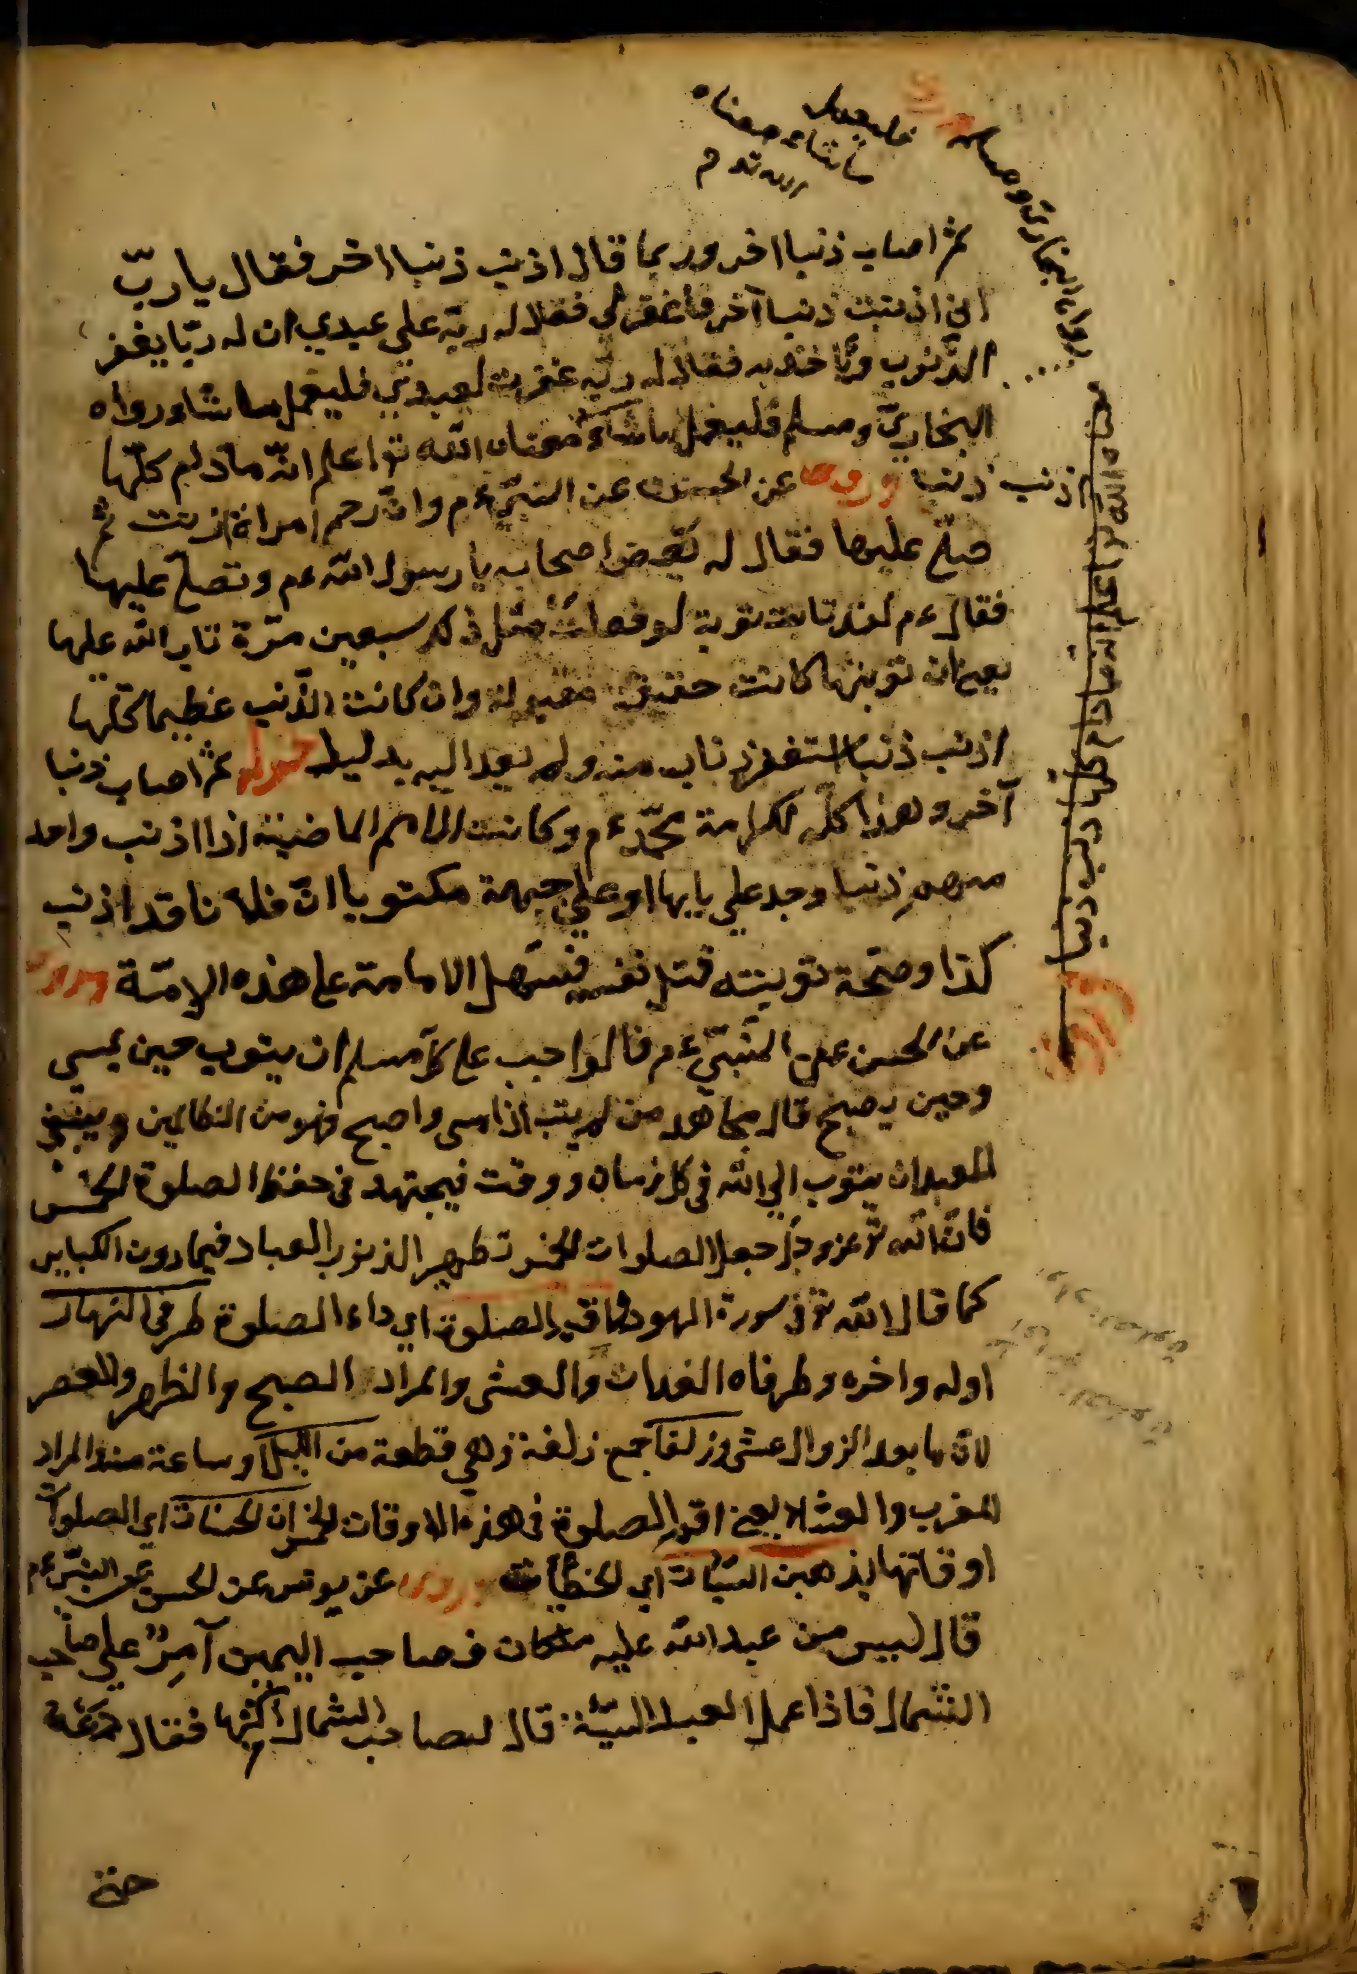 ثم اصاب ذنبا اخر وربما قال اذنب ذنبا اخر فقال يا ربّ
اني اذنبت ذنبا آخر فاغفر لي فقال له ربّه علم عبدي ان له ربّا يغفر
الذّنوب ويأخذ به فقال له ربّه غفرت لعبدي فليعمل ما شاء رواه
البخاريّ ومسلم فليعمل ما شاء معناه الله تع اعلم انّه ما دام كلّما
اذنب ذنبا وروى عن الحسن عن النبيّ ءم وانّ رحم امراة زنت ثم
صلّى عليها فقال له بعض اصحابه يا رسول الله ءم وتصلّ عليها
فقال ءم لقد تابت توبة لو فعلت مثل ذلك سبعين مرّة تاب الله عليها
يعنى ان توبتها كانت حقيقة مقبولة وان كانت الذّنب عظيما كلّها
اذنب ذنبا استغفر تاب منه ولم يعد اليه بدليل قوله ثم اصاب ذنبا
آخر وهذا كلّه لكرامة محمّد ءم وكانت الامم الماضية اذا اذنب واحد
منهم ذنبا وجد على بابها او على جبهة مكتوبا انّ فلانا قد اذنب
كذا وصحّة توبته قتل نفسه فسهّل الامامة على هذه الامّة وروى
عن الحسن عن النّبيّ ءم قال واجب على كلّ مسلم ان يتوب حين يمسى
وحين يصبح قال مجاهد من لم يتب اذا امسى واصبح فهو من الظالمين وينبغى
للعبد ان يتوب الى الله فى كل زمان ووقت فيجتهد فى حفظ الصلوة الخمس
فانّ الله تع عزّ وجلّ جعل الصلوات الخمس تطهير الذنوب العباد فيما دون الكباير
كما قال الله تع فى سورة الهود واقم الصلوة اى داء الصلوة طرفى النهار
اوله واخره وطرفاه الغدات والعشى والمراد الصبح والظهر والعصر
لانّ ما بعد الزوال عشى وزلفا جمع زلفة وهي قطعة من اللّيل وساعة منه والمراد
المغرب والعشاء يعنى اقم الصلوة فى هذه الاوقات الخمس ان الحسنات اى الصلوات
اوقاتها يذهبن السّيّأت اى الخطيّأت وروى عن يونس عن الحسن عن النبيّ ءم
قال ليس من عبد الله عليه ملكان فصاحب اليمين آمرٌ على صاحب
الشّمال فاذا عمل العبد السّيّئة قال لصاحب الشمال اكتبها فقال دعه
حتى
فليعمل
ما شاء معناه
الله تع م
رواه البخارى ومسلم
معناه الله تع اعلم انه ما دام كلما اذنب ذنبا